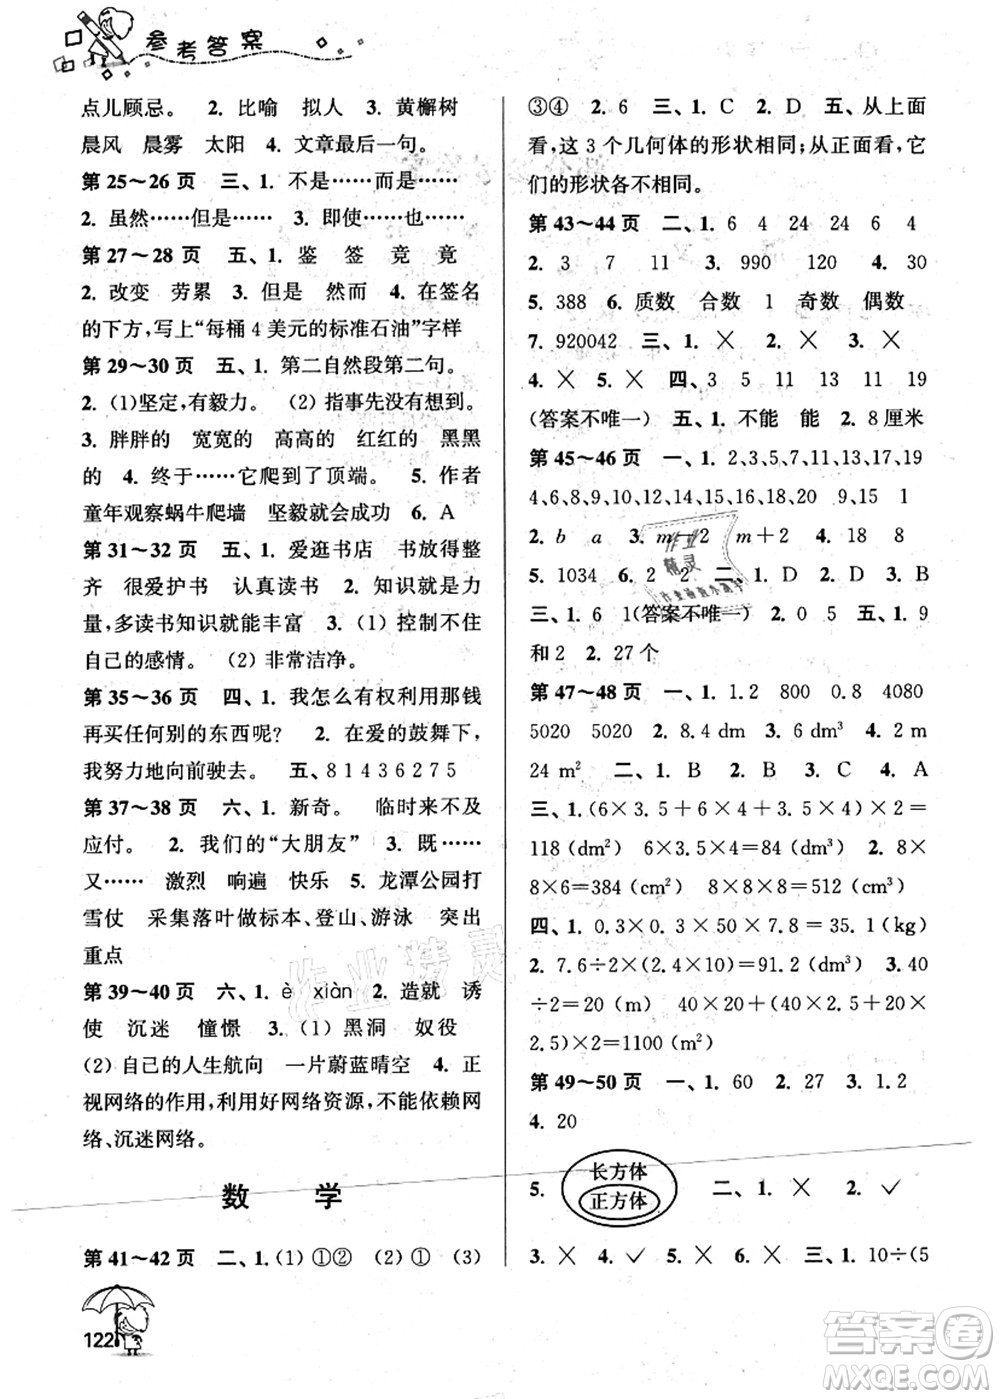 参考答案
点儿顾忌。 2. 比喻 拟人 3. 黄槲树
晨风 晨雾 太阳 4. 文章最后一句。
第 25～26 页 三、1. 不是……而是……
2. 虽然……但是…… 3. 即使……也……
第 27～28 页 五、1. 鉴 签 竞 竟
2. 改变 劳累 3. 但是 然而 4. 在签名
的下方，写上“每桶 4 美元的标准石油”字样
第 29～30 页 五、1. 第二自然段第二句。
2. (1)坚定，有毅力。 (2)指事先没有想到。
3. 胖胖的 宽宽的 高高的 红红的 黑黑
的 4. 终于……它爬到了顶端。 5. 作者
童年观察蜗牛爬墙 坚毅就会成功 6. A
第 31～32 页 五、1. 爱逛书店 书放得整
齐 很爱护书 认真读书 2. 知识就是力
量，多读书知识就能丰富 3. (1) 控制不住
自己的感情。 (2) 非常洁净。
第 35～36 页 四、1. 我怎么有权利用那钱
再买任何别的东西呢? 2. 在爱的鼓舞下，
我努力地向前驶去。 五、8 1 4 3 6 2 7 5
第 37～38 页 六、1. 新奇。 临时来不及
应付。 2. 我们的“大朋友” 3. 既……
又…… 激烈 响遍 快乐 5. 龙潭公园打
雪仗 采集落叶做标本、登山、游泳 突出
重点
第 39～40 页 六、1. è xiàn 2. 造就 诱
使 沉迷 憧憬 3. (1) 黑洞 奴役
(2) 自己的人生航向 一片蔚蓝晴空 4. 正
视网络的作用，利用好网络资源，不能依赖网
络、沉迷网络。
数 学
第 41～42 页 二、1. (1) ①② (2) ① (3)
122
③④ 2. 6 三、1. C 2. D 五、从上面
看，这 3 个几何体的形状相同；从正面看，它
们的形状各不相同。
第 43～44 页 二、1. 6 4 24 24 6 4
2. 3 7 11 3. 990 120 4. 30
5. 388 6. 质数 合数 1 奇数 偶数
7. 920042 三、1. × 2. × 3. ×
4. × 5. × 四、3 5 11 13 11 19
(答案不唯一) 五、1. 不能 能 2. 8 厘米
第 45～46 页 一、1. 2、3、5、7、11、13、17、19
4、6、8、9、10、12、14、15、16、18、20 9、15 1
2. b a 3. m－2 m＋2 4. 12
5. 1034 6. 2 2 二、1. D 2. D 3. B
三、1. 6 1(答案不唯一) 2. 0 5 五、1. 9
和 2 2. 27 个
第 47～48 页 一、1. 1.2 800 0.8 4080
5020 5020 2. 4 3. dm dm³ 4. 2 m
24 m² 二、1. B 2. B 3. C 4. A
三、1. (6×3.5＋6×4＋3.5×4)×2＝
118 (dm²) 6×3.5×4＝84 (dm³) 2. 8×
8×6＝384 (cm²) 8×8×8＝512 (cm³)
四、1. 0.3×0.3×50×7.8＝35.1 (kg)
2. 7.6÷2×(2×6×2)＝91.2 (dm³) 3. 40
÷2÷2.5＝8(m) 40×20＋(40×2.5＋20×
2.5)×2＝1100 (m²)
第 49～50 页 一、1. 60 2. 27 3. 1.2
4. 20
5. 长方体 正方体 二、1. × 2. ✓
3. × 4. ✓ 5. × 6. × 三、1. 10÷(5
作业精灵
答案圈
MXQE.COM